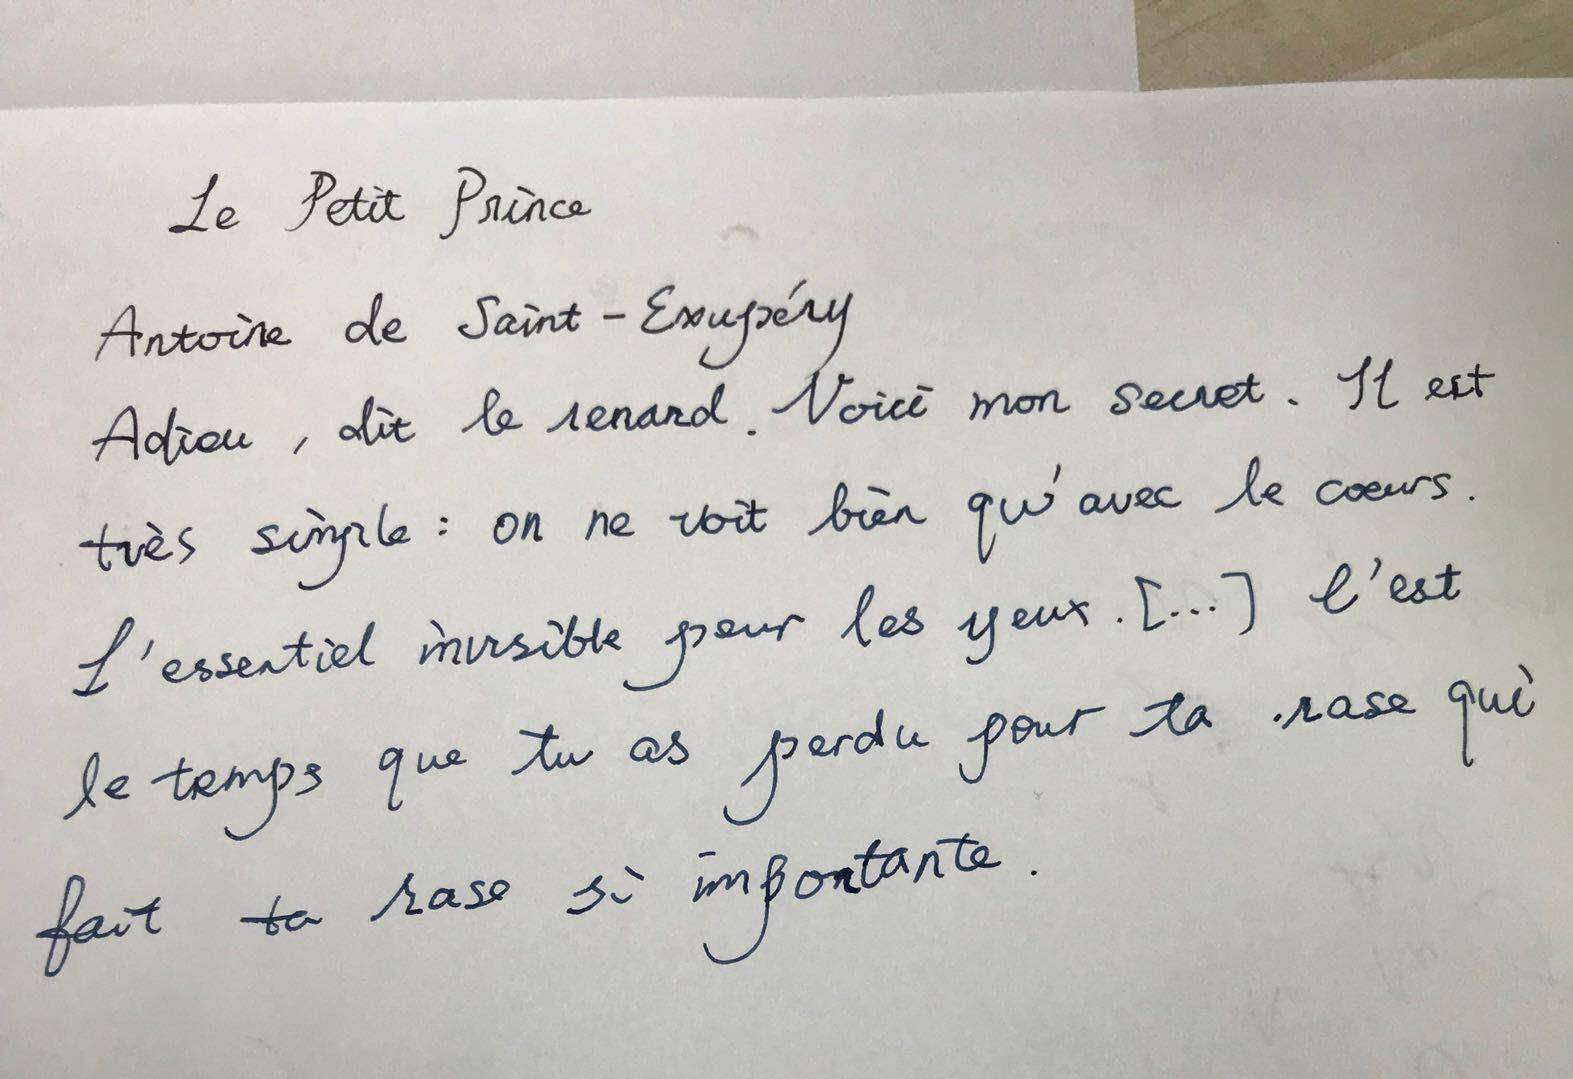 Le Petit Prince
Antoine de Saint-Exupéry
Adieu, dit le renard. Voici mon secret. Il est
très simple: on ne voit bien qu'avec le cœurs.
L'essentiel invisible pour les yeux. [...] C'est
le temps que tu as perdu pour ta rase qui
fait ta rase si importante.